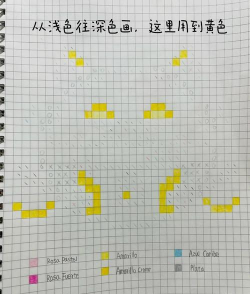 从浅色往深色画，这里用到黄色
Rosa Pastel
Amarillo
Azul Caribe
Rosa Fuerte
Amarillo Claro
Plata